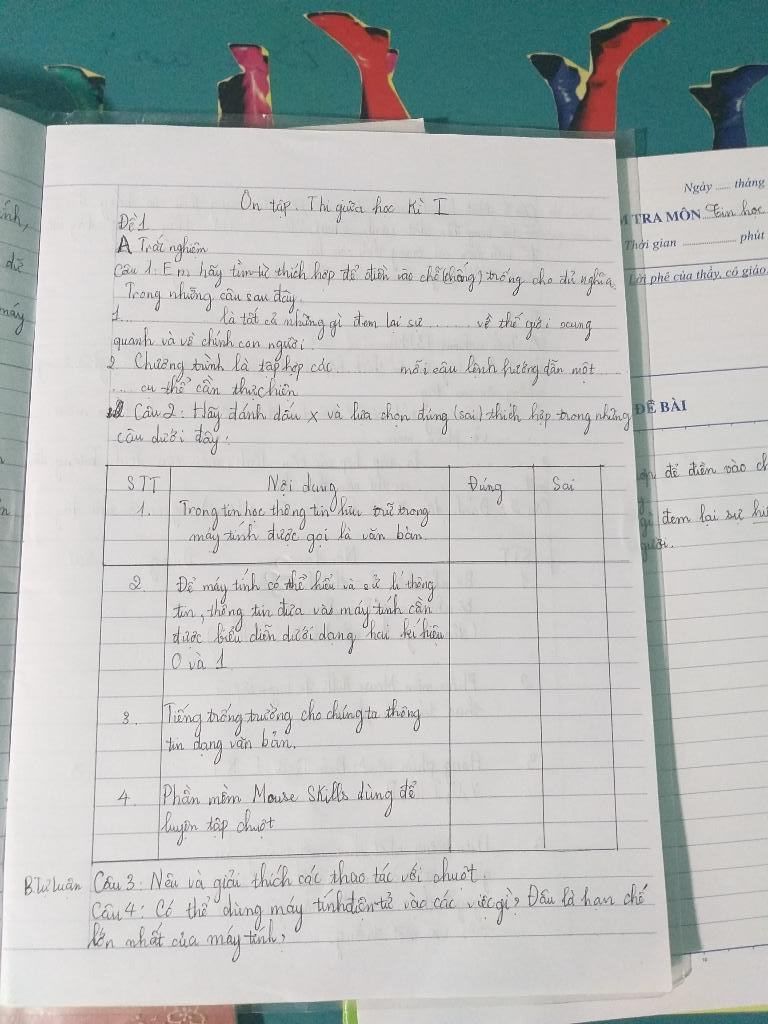 Ôn tập. Thi giữa học kì I
Đề 1
A Trắc nghiệm
Câu 1: Em hãy tìm từ thích hợp để điền vào chỗ (chấm) trống cho đủ nghĩa
Trong những câu sau đây.
1............ là tất cả những gì đem lại sự ........ về thế giới xung
quanh và về chính con người.
2 Chương trình là tập hợp các ........ mỗi câu lệnh hướng dẫn một
.... cụ thể cần thực hiện
Câu 2: Hãy đánh dấu x và lựa chọn đúng (sai) thích hợp trong những
câu dưới đây:
STT Nội dung Đúng Sai
1. Trong tin học thông tin lưu trữ trong
máy tính được gọi là văn bản.
2. Để máy tính có thể hiểu và xử lí thông
tin, thông tin đưa vào máy tính cần
được biểu diễn dưới dạng hai kí hiệu
0 và 1
3. Tiếng trống trường cho chúng ta thông
tin dạng văn bản.
4. Phần mềm Mouse Skills dùng để
luyện tập chuột
B. Tự luận Câu 3: Nêu và giải thích các thao tác với chuột.
Câu 4: Có thể dùng máy tính điện tử vào các việc gì? Đâu là hạn chế
lớn nhất của máy tính?
Ngày ..... tháng
TRA MÔN Tin học
Thời gian .................. phút
Lời phê của thầy, cô giáo
ĐỀ BÀI
để điền vào ch
gì đem lại sự hi
người.